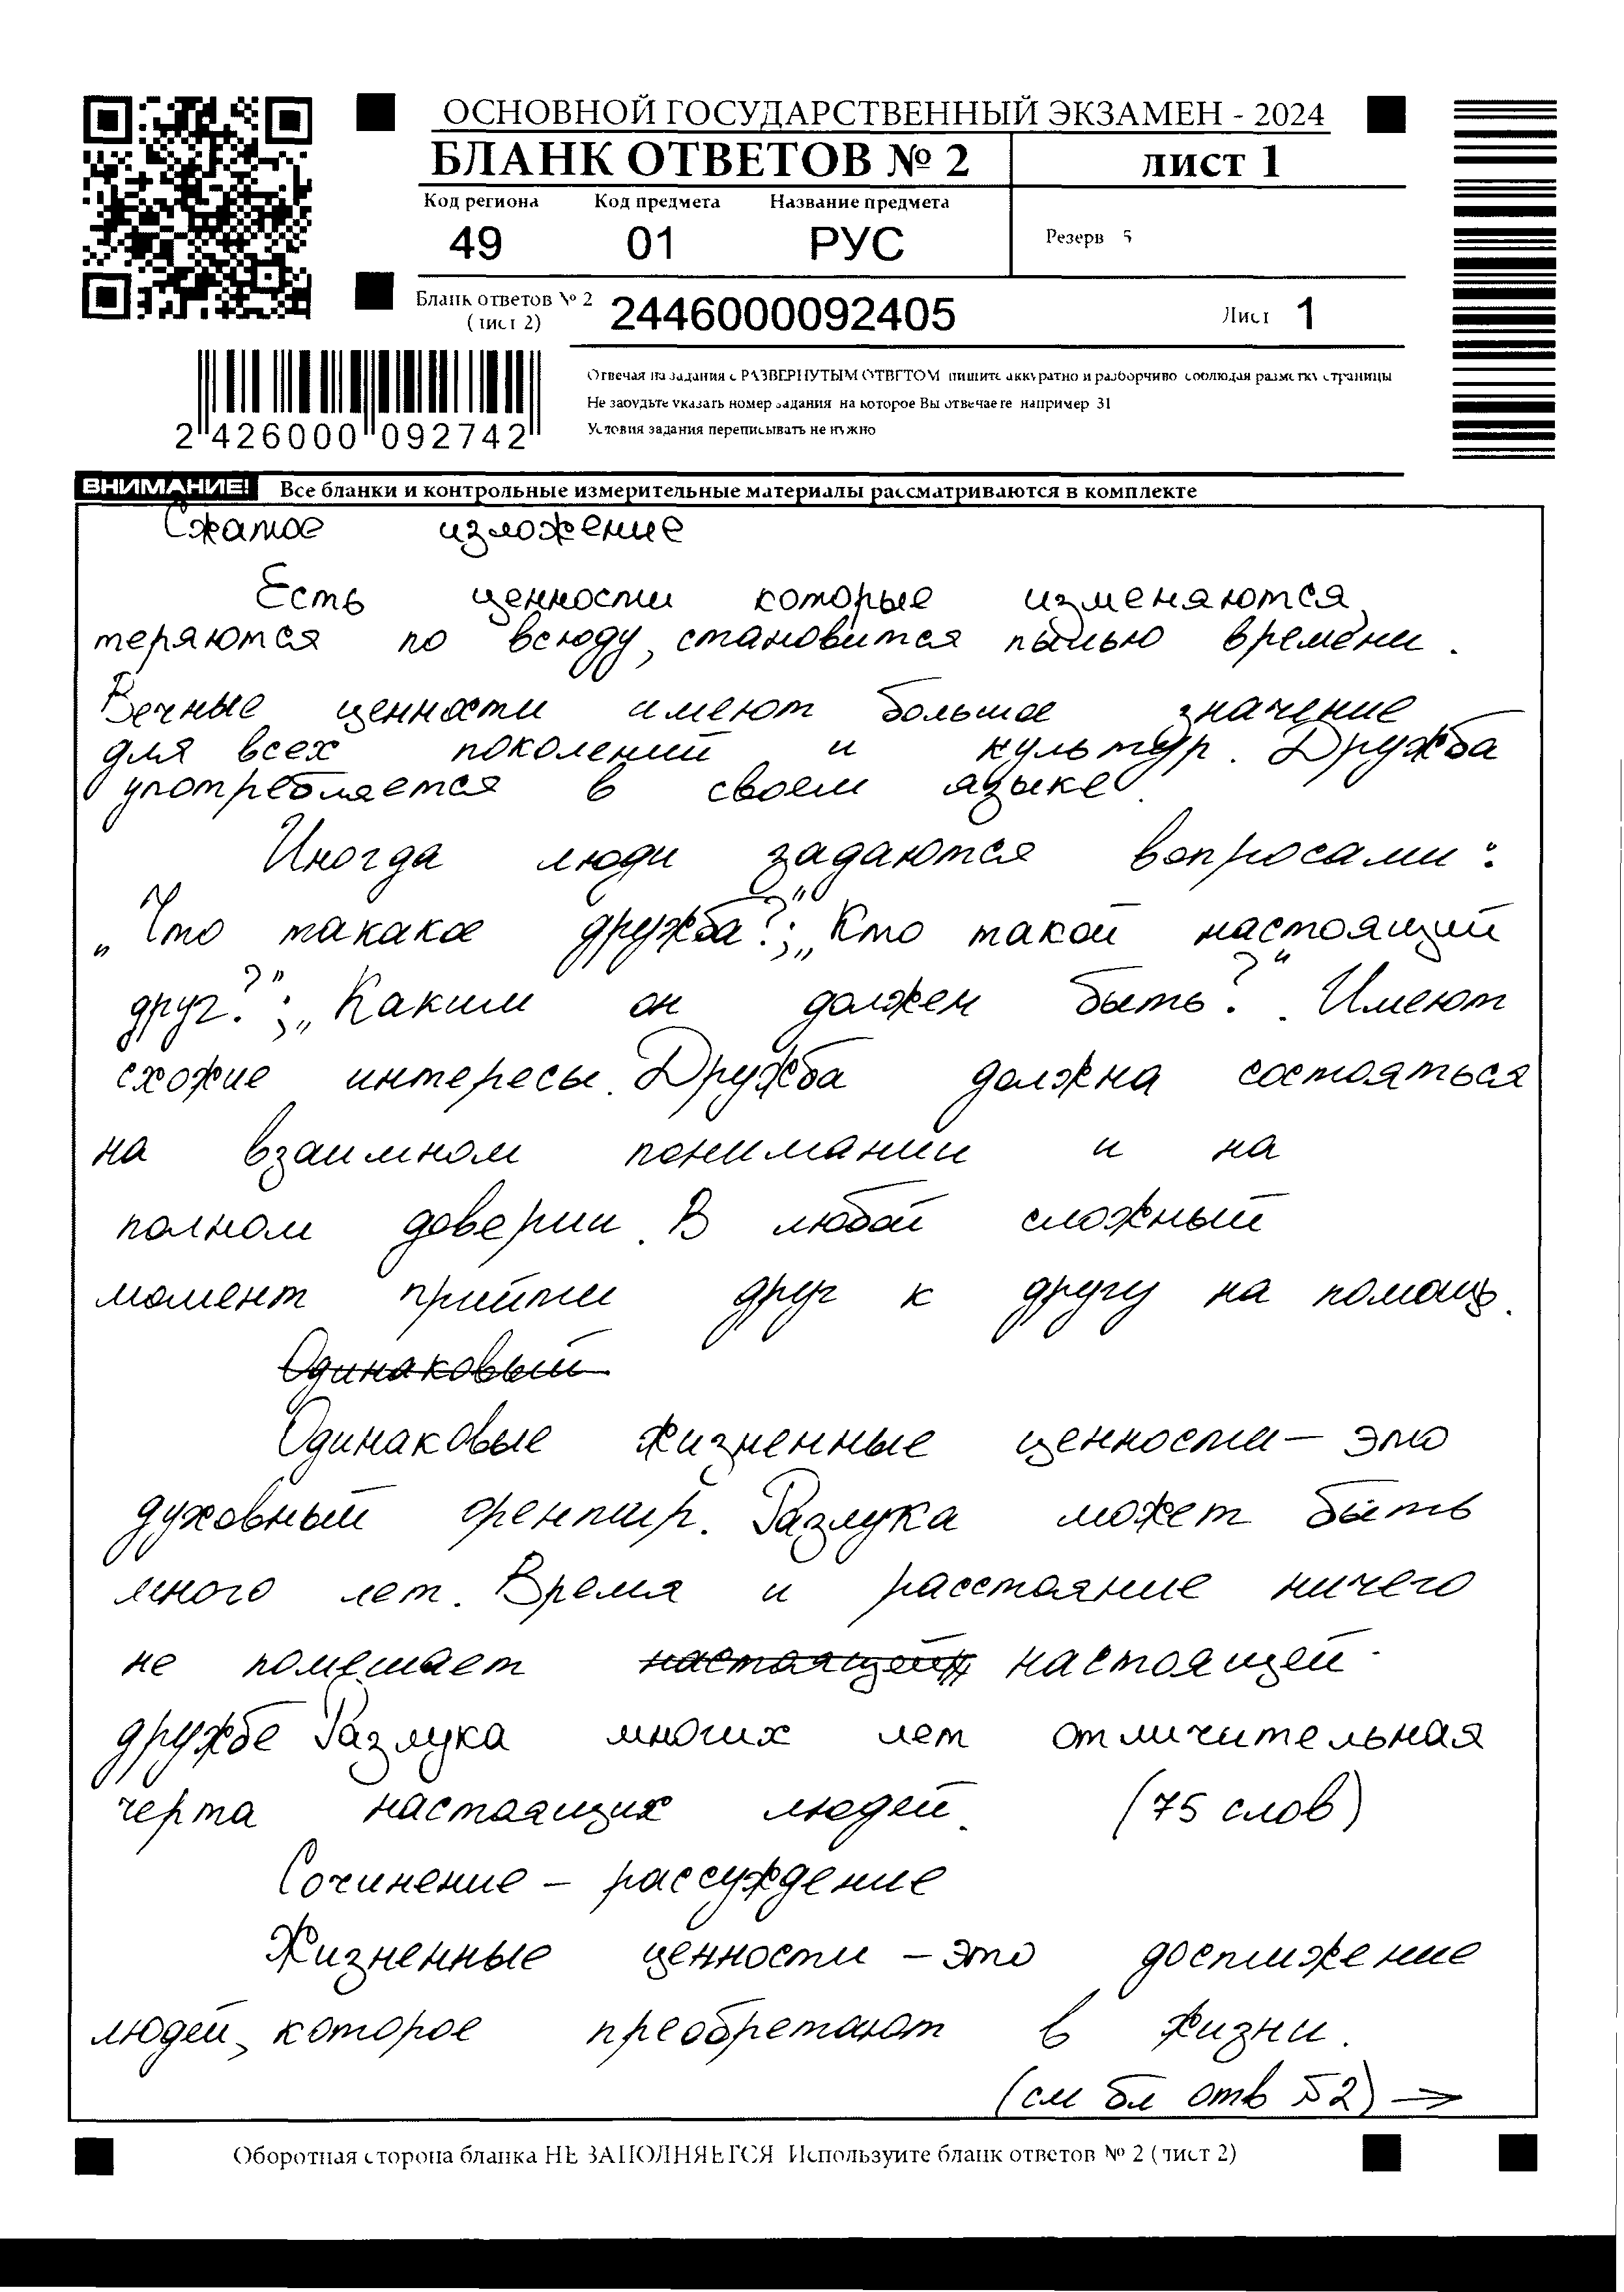 ОСНОВНОЙ ГОСУДАРСТВЕННЫЙ ЭКЗАМЕН - 2024
БЛАНК ОТВЕТОВ № 2
ЛИСТ 1
Код региона Код предмета Название предмета
49 01 РУС
Резерв 5
Бланк ответов № 2
(лист 2)
2446000092405
Лист 1
Отвечая на задания с РАЗВЕРНУТЫМ ОТВЕТОМ пишите аккуратно и разборчиво соблюдая разметку страницы
Не забудьте указать номер задания на которое Вы отвечаете например 31
Условия задания переписывать не нужно
2 426000 092742
ВНИМАНИЕ! Все бланки и контрольные измерительные материалы рассматриваются в комплекте
Сжатое изложение
Есть ценности которые изменяются,
теряются по всюду, становится пылью времени.
Вечные ценности имеют большое значение
для всех поколений и культур. Дружба
употребляется в своем языке.
Иногда люди задаются вопросами:
„Что такакое дружба?"; „Кто такой настоящий
друг?"; „Каким он должен быть?". Имеют
схожие интересы. Дружба должна состояться
на взаимном понимании и на
полном доверии. В любой сложный
момент прийти друг к другу на помощь.
Одинаковый
Одинаковые жизненные ценности – это
духовный оренпир. Разлука может быть
много лет. Время и расстояние ничего
не помешает настоящей настоящей
дружбе Разлука многих лет отличительная
черта настоящих людей. (75 слов)
Сочинение – рассуждение
Жизненные ценности – это достижение
людей, которое преобретают в жизни.
(см бл отв №2) →
Оборотная сторона бланка НЕ ЗАПОЛНЯЕТСЯ Используйте бланк ответов № 2 (лист 2)